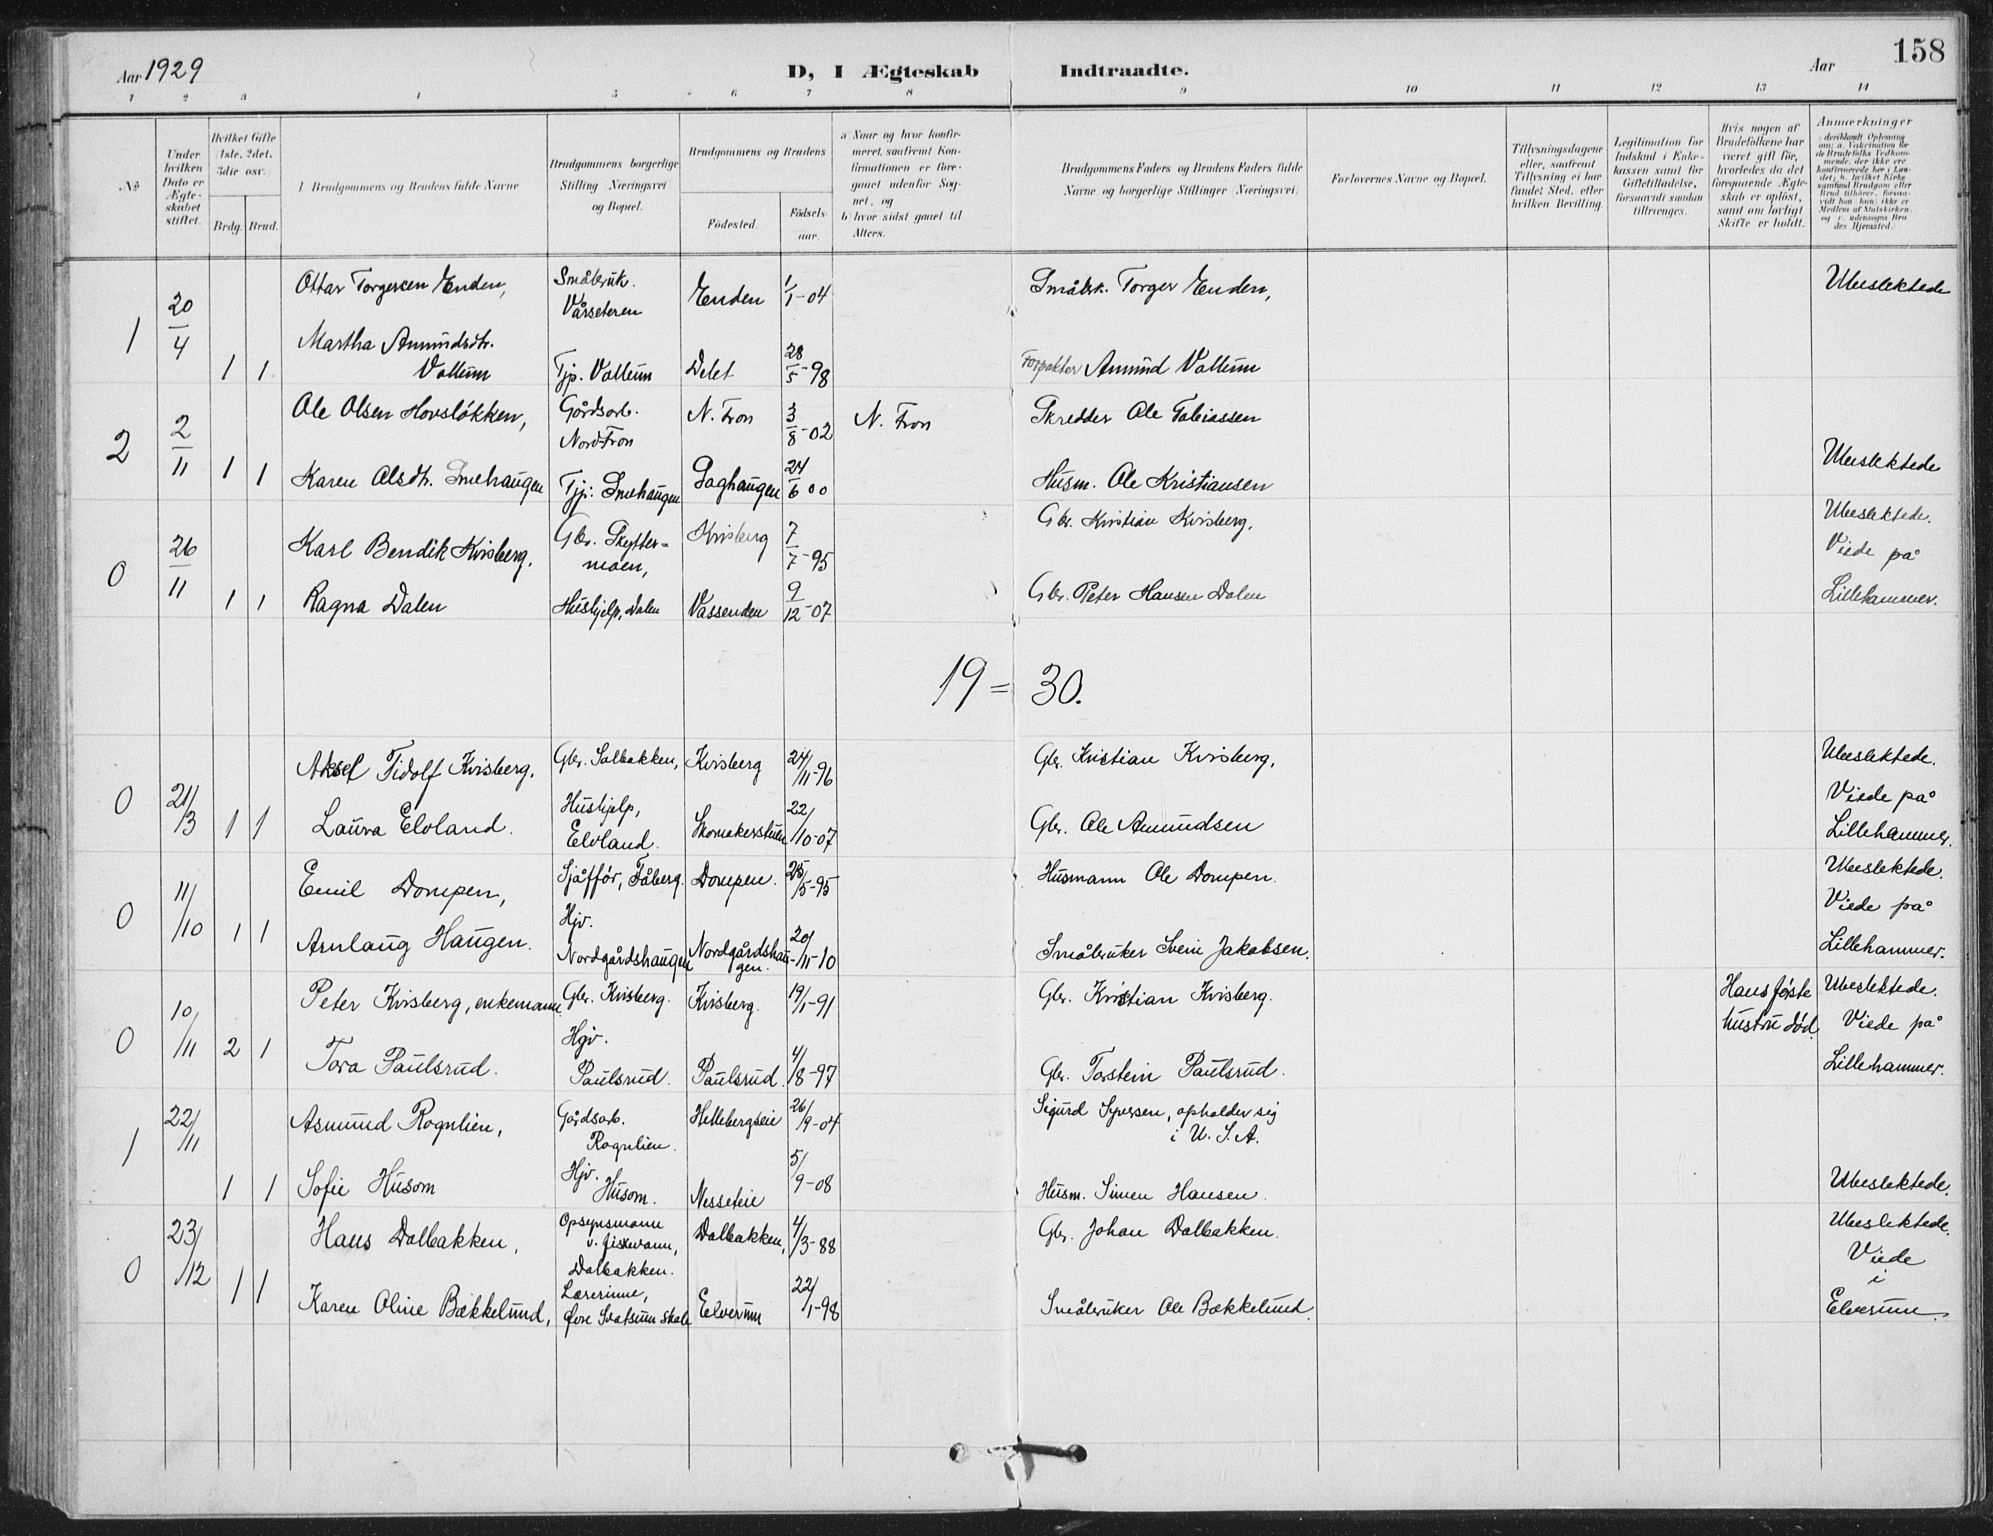 Aar 1929
D, I Ægteskab Indtraadte.
Aar
158
1 2 3 4 5 6 7 8 9 10 11 12 13 14
№
Under hvilken Dato er Ægteskabet stiftet.
Hvilket Gifte 1ste, 2det, 3die osv.
Brdg. Brud.
Brudgommens og Brudens fulde Navne
Brudgommens borgerlige Stilling Næringsvei og Bopæl.
Brudgommens og Brudens
Födested. Födselsaar.
a) Naar og hvor konfirmeret, saafremt Konfirmationen er foregaaet udenfor Sognet, og
b) hvor sidst gaaet til Alters.
Brudgommens Faders og Brudens Faders fulde Navne og borgerlige Stillinger (Næringsvei)
Forlovernes Navne og Bopæl.
Tillysningsdagene eller, saafremt Tillysning ei har fundet Sted, efter hvilken Bevilling.
Legitimation for Indskud i Enkekassen samt for Giftetilladelse, forsaavidt saadan tiltrænges.
Hvis nogen af Brudefolkene har været gift før, hvorledes da det foregaaende Ægteskab er opløst, samt om lovligt Skifte er holdt.
Anmærkninger
1 20/4 Ottar Torgersen Enden, Småbruk. Vårseteren Enden 1/1-04 Småbrk. Torger Enden, Ubeslektede
1 1 Martha Amundsdtr. Vollum Tjp. Vollum Delet 28/5-98 Forpakter Amund Vollum
2 2/11 Ole Olsen Hovsløkken, Gårdsarb. Nord-Fron N. Fron 3/8-02 N. Fron Skredder Ole Tobiassen
1 1 Karen Olsdtr. Smehaugen Tjp: Smehaugen 24/6 00 Husm. Ole Kristiansen Ubeslektede
0 26/11 Karl Bendik Kvisberg, Gbr. Skyttermoen, Kvisberg 7/7-95 Gbr. Kristian Kvisberg. Ubeslektede. Viede på
1 1 Ragna Dalen Hushjelp, Dalen Vassenden 9/12-07 Gbr. Peter Hansen Dalen Lillehammer.
19 = 30.
0 21/3 Aksel Tidolf Kvisberg. Gbr. Solbakken, Kvisberg 24/11-96 Gbr. Kristian Kvisberg, Ubeslektede. Viede på
1 1 Laura Elvland. Hushjelp, Elvland. Skomakerstuen 22/10-07 Gbr. Ole Amundsen Lillehammer.
0 11/10 Emil Dompen, Sjåffør, Fåberg. Dompen. 25/5-95 Husmann Ole Dompen. Ubeslektede. Viede på
1 1 Arnlaug Haugen. Hjv. Nordgårdshaugen Nordgårdshaugen. 20/11-10 Småbruker Svein Jakobsen. Lillehammer.
0 10/11 Peter Kvisberg, enkemann Gbr. Kvisberg. Kvisberg. 19/1-91 Gbr. Kristian Kvisberg. Hans første hustru død. Ubeslektede. Viede på
2 1 Tora Paulsrud. Hjv. Paulsrud. Paulsrud. 4/8-97 Gbr. Torstein Paulsrud. Lillehammer.
1 22/11 Asmund Rognlien, Gårdsarb. Rognlien. Hellebergseie 26/9-04 Sigurd Syversen, opholder sig i U. S. A.
1 1 Sofie Husom Hjv. Husom. Nesseteie 5/9-08 Husm. Simen Hansen. Ubeslektede.
0 23/12 Hans Dalbakken, Opsynsmann v. fiskevann, Dalbakken. Dalbakken, 4/3-88 Gbr. Johan Dalbakken. Ubeslektede. Viede i
1 1 Karen Oline Bækkelund, Lærerinne, Øvre Svatsum skole Elverum 22/1-98 Småbruker Ole Bækkelund. Elverum.